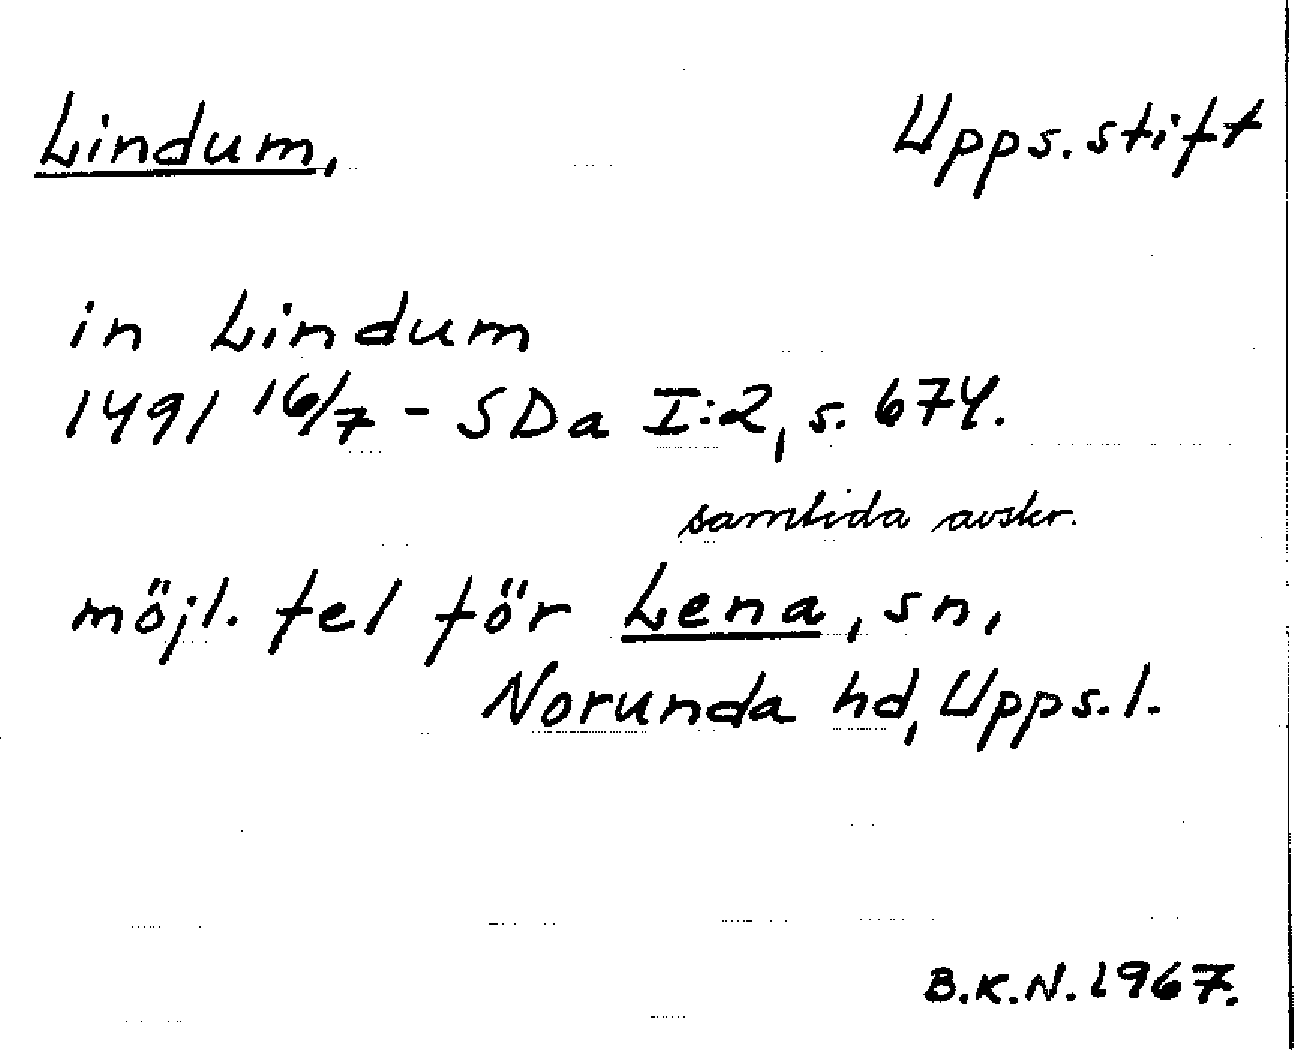 Lindum, Upps. stift
in Lindum
1491 16/7 - SDa I:2, s. 674.
samtida avskr.
möjl. fel för Lena, sn,
Norunda hd, Upps. l.
B.K.N. 1967.